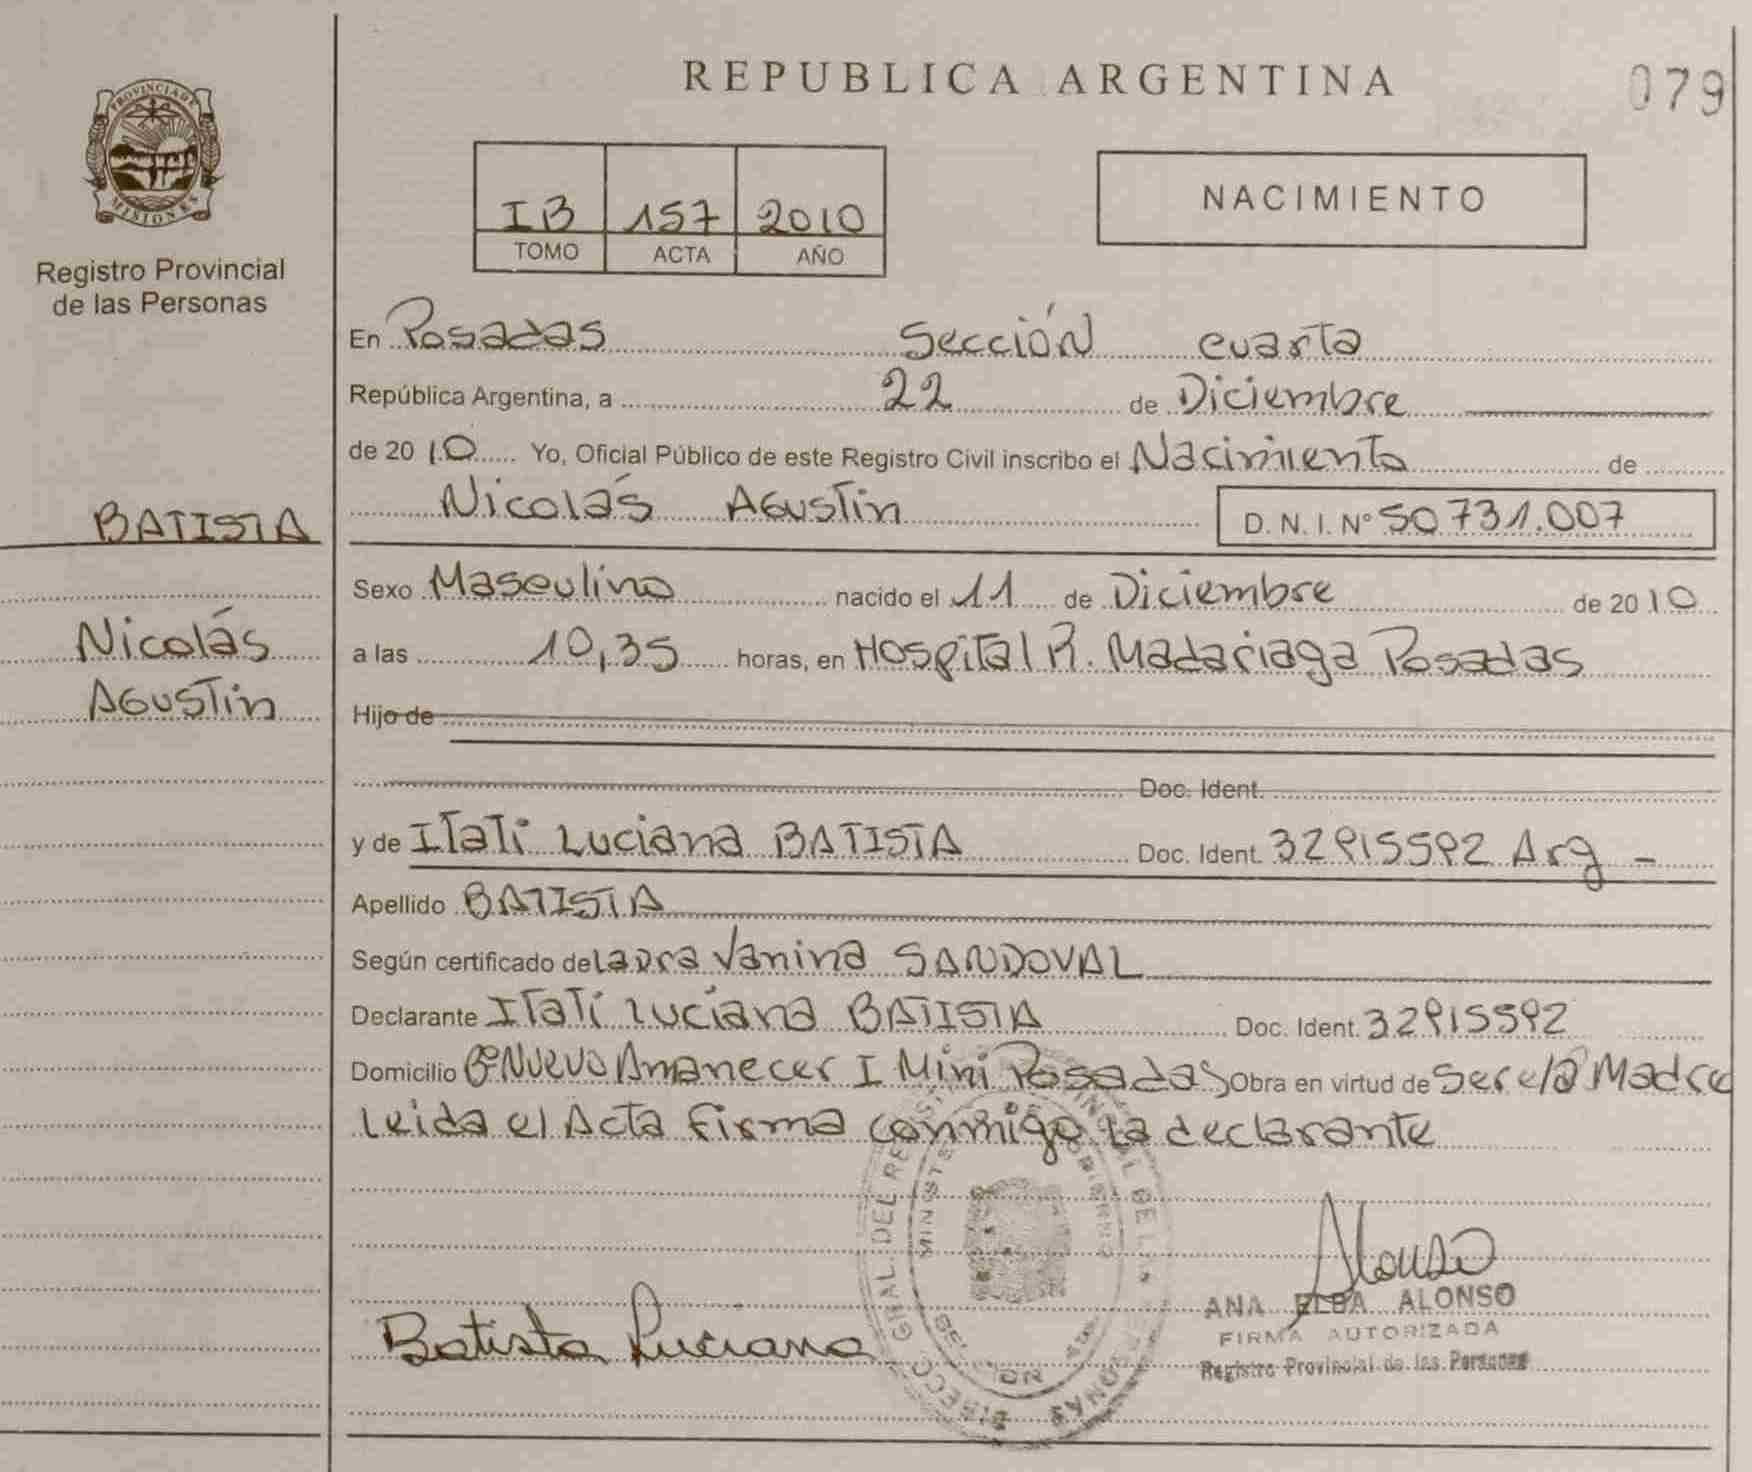 PROVINCIA DE
MISIONES
Registro Provincial
de las Personas
BATISTA
Nicolás
Agustin
REPUBLICA ARGENTINA
079
IB 157 2010
TOMO ACTA AÑO
NACIMIENTO
En Posadas Sección cuarta
República Argentina, a 22 de Diciembre
de 2010 Yo, Oficial Público de este Registro Civil inscribo el Nacimiento de
Nicolás Agustin D. N. I. Nº 50.731.007
Sexo Masculino nacido el 11 de Diciembre de 2010
a las 10,35 horas, en Hospital R. Madariaga Posadas
Hijo de
Doc. Ident.
y de Itatí Luciana BATISTA Doc. Ident. 32915592 Arg -
Apellido BATISTA
Según certificado de Laura Vanina SANDOVAL
Declarante Itatí Luciana BATISTA Doc. Ident. 32915592
Domicilio Bº Nuevo Amanecer I Mini Posadas Obra en virtud de Ser el/a Madre
leida el Acta firma conmigo la declarante
Alonso
ANA ELBA ALONSO
FIRMA AUTORIZADA
Registro Provincial de las Personas
Batista Luciana